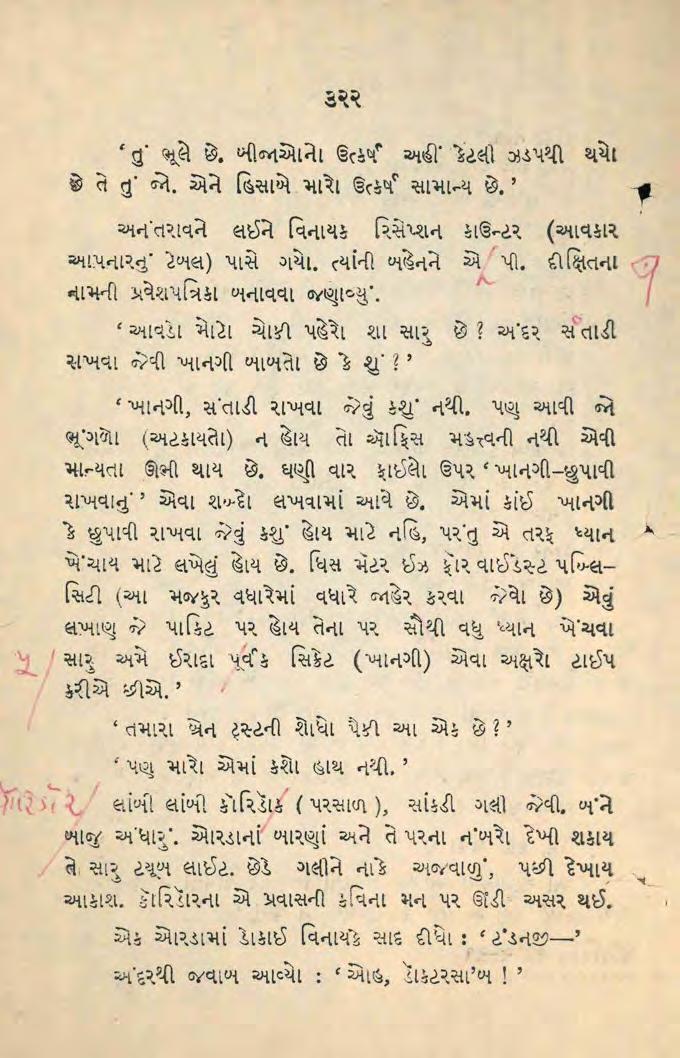 ૩૨૨
‘ તું ભૂલે છે. બીજાઓનો ઉત્કર્ષ અહીં કેટલી ઝડપથી થયો
છે તે તું જો. એને હિસાબે મારો ઉત્કર્ષ સામાન્ય છે. ’
અનંતરાવને લઈને વિનાયક રિસેપ્શન કાઉન્ટર (આવકાર
આપનારનું ટેબલ) પાસે ગયો. ત્યાંની બહેનને એ પી. દીક્ષિતના
નામની પ્રવેશપત્રિકા બનાવવા જણાવ્યું.
‘ આવડો મોટો ચોકી પહેરો શા સારુ છે ? અંદર સંતાડી
રાખવા જેવી ખાનગી બાબતો છે કે શું ? ’
‘ ખાનગી, સંતાડી રાખવા જેવું કશું નથી. પણ આવી જો
ભૂંગળો (અટકાયતો) ન હોય તો ઑફિસ મહત્ત્વની નથી એવી
માન્યતા ઊભી થાય છે. ઘણી વાર ફાઈલો ઉપર ‘ ખાનગી–છુપાવી
રાખવાનું ’ એવા શબ્દો લખવામાં આવે છે. એમાં કાંઈ ખાનગી
કે છુપાવી રાખવા જેવું કશું હોય માટે નહિ, પરંતુ એ તરફ ધ્યાન
ખેંચાય માટે લખેલું હોય છે. ધિસ મૅટર ઈઝ ફૉર વાઈડેસ્ટ પબ્લિ–
સિટી (આ મજકુર વધારેમાં વધારે જાહેર કરવા જેવો છે) એવું
લખાણ જે પાકિટ પર હોય તેના પર સૌથી વધુ ધ્યાન ખેંચવા
સારુ અમે ઈરાદા પૂર્વક સિક્રેટ (ખાનગી) એવા અક્ષરો ટાઈપ
કરીએ છીએ. ’
‘ તમારા બ્રેન ટ્રસ્ટની શોધો પૈકી આ એક છે ? ’
‘ પણ મારો એમાં કશો હાથ નથી. ’
લાંબી લાંબી કૉરિડૉક ( પરસાળ ), સાંકડી ગલી જેવી. બંને
બાજુ અંધારું. ઓરડાનાં બારણાં અને તે પરના નંબરો દેખી શકાય
તે સારુ ટયૂબ લાઈટ. છેડે ગલીને નાકે અજવાળું, પછી દેખાય
આકાશ. કૉરિડૉરના એ પ્રવાસની કવિના મન પર ઊંડી અસર થઈ.
એક ઓરડામાં ડોકાઈ વિનાયકે સાદ દીધો : ‘ ટંડનજી—’
અંદરથી જવાબ આવ્યો : ‘ ઓહ, ડૉકટરસા’બ ! ’